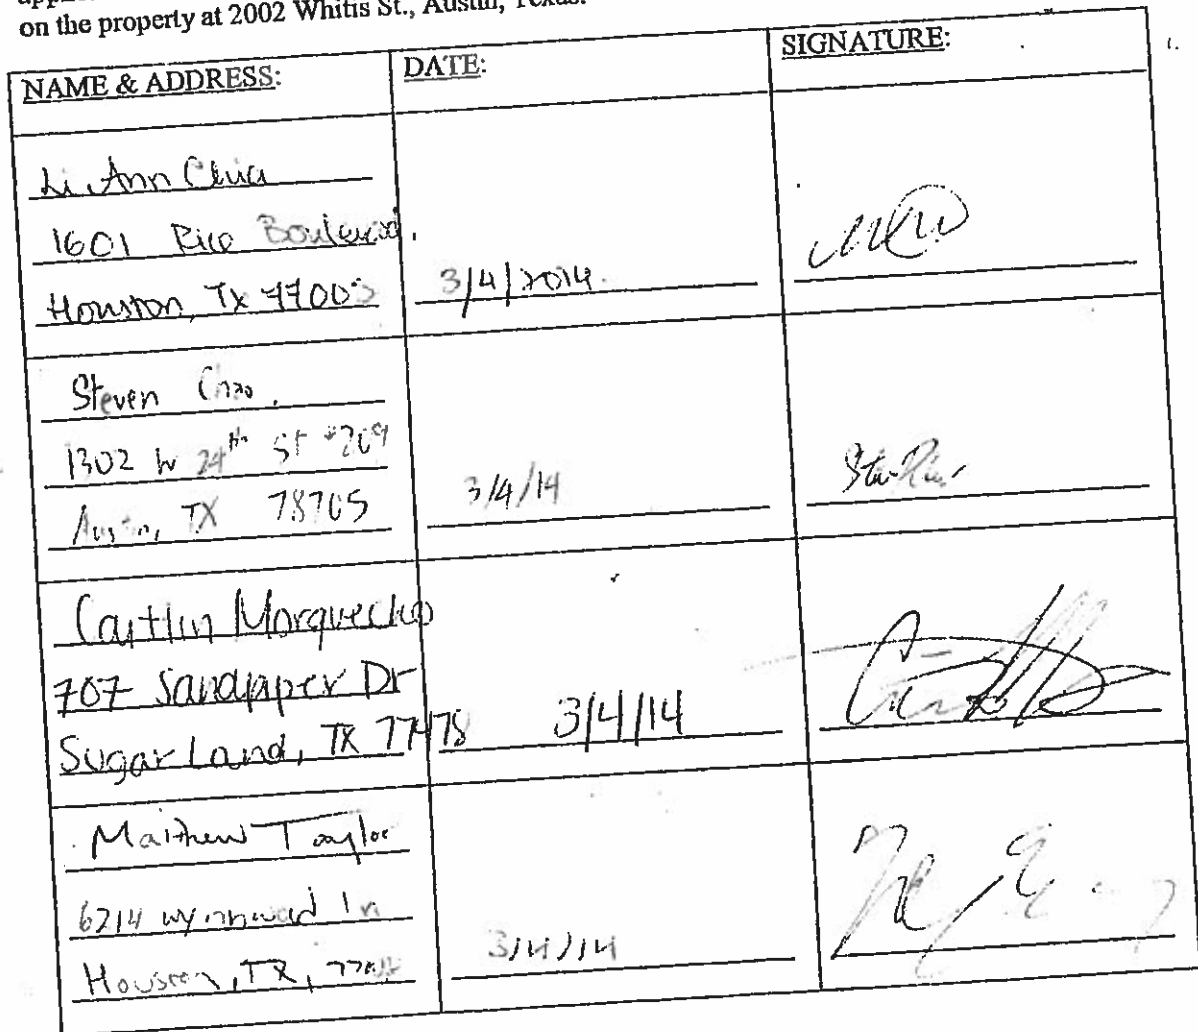 on the property at 2002 Whitis St., Austin, Texas.
NAME & ADDRESS: DATE: SIGNATURE:
Li Ann Chia
1601 Rice Boulevard.
Houston, Tx 77005 3/4/2014.
Steven
1302 W 24th St #209
Austin, TX 78705 3/4/14
Caitlin Morquecho
707 Sandpiper Dr
Sugar Land, TX 77478 3/4/14
Matthew Taylor
6214 Ln
Houston, TX, 3/4/14